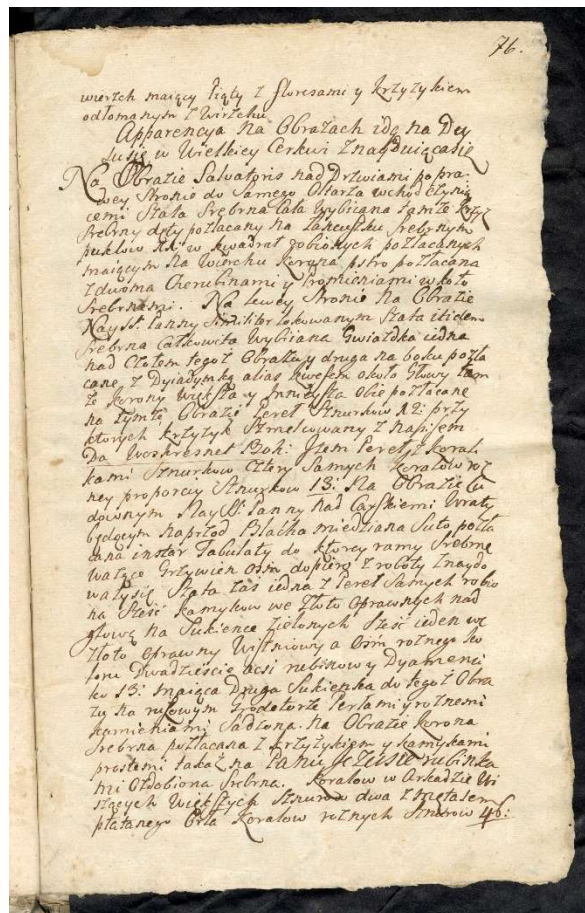 76.
wierzch maiący piąty z floresami y krzyżykiem
odłomanym z wirzchu
Apparencya Na Obrazach idą na Dey
susię w Wielkiey Cerkwi Znayduiącasię
Na Obrazie Salvatoris nad Drzwiami po pra:
wey stronie do Samego Ołtarza wchod
cemi Szata Srebrna Cała wybiiana tamże krzyż
Srebrny dęty pozłacany na łancuszku Srebrnym
puklow w kwadrat robionych pozłacanych
maiącym Na Wierchu Korona pstro pozłacana
z dwoma Cherubinami y Promieniami w koło
Srebrnemi. Na lewey Stronie Na Obrazie
Nayśś. Panny Similiter lokowanym Szata itidem
Srebrna całkowita Wybiiana Gwiazdka iedna
nad Czołem tegoż Obrazu y druga na boku pozła
cane z Dyiadymką alias kwefem około Głowy tam
że korony większa y mnieysza obie pozłacane
na tymże Obrazie Pereł Sznurkow 12: przy
ktorych krzyżyk Szmelcowany z Napisem
Da Woskresnet Boh: Item Pereł z koral
kami Sznurkow Cztery Samych koralow roż
ney proporcyi Sznurkow 13: Na Obrazie Cu
downym Nayśś: Panny Nad Carskiemi Wraty
będącym naprzod Blacha miedziana Suto pozła
cana instar Tabulaty do ktorey ramy Srebrne
ważące Grzywien ośm dopiero z roboty znaydo
wałysię Szata zaś iedna z Pereł Samych robio
na Sześć kamykow we złoto oprawnych nad
głową na Sukience zielonych Sześć ieden we
złoto oprawny Wiśniowy a Ośm rożnego ko
loru Dwadzieścia rubinowy Dyamenci
ko 13: maiąca Druga Sukienka do tegoż Obra
zu na Perłami y rożnemi
kamieniami Sadzona. Na Obrazie korona
Srebrna pozłacana z krzyżykiem y kamykami
prostemi takaż na Panu Jezusie rubinka
mi Ozdobiona Srebrna. Koralow w Arkadzie Wi
szących Większych Sznurow dwa z metalem
płatanego Orła Koralow rożnych Sznurow 46: